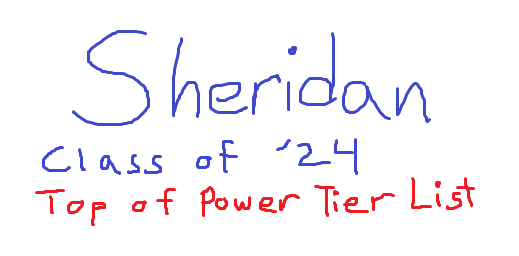 Sheridan
Class of '24
Top of Power Tier List